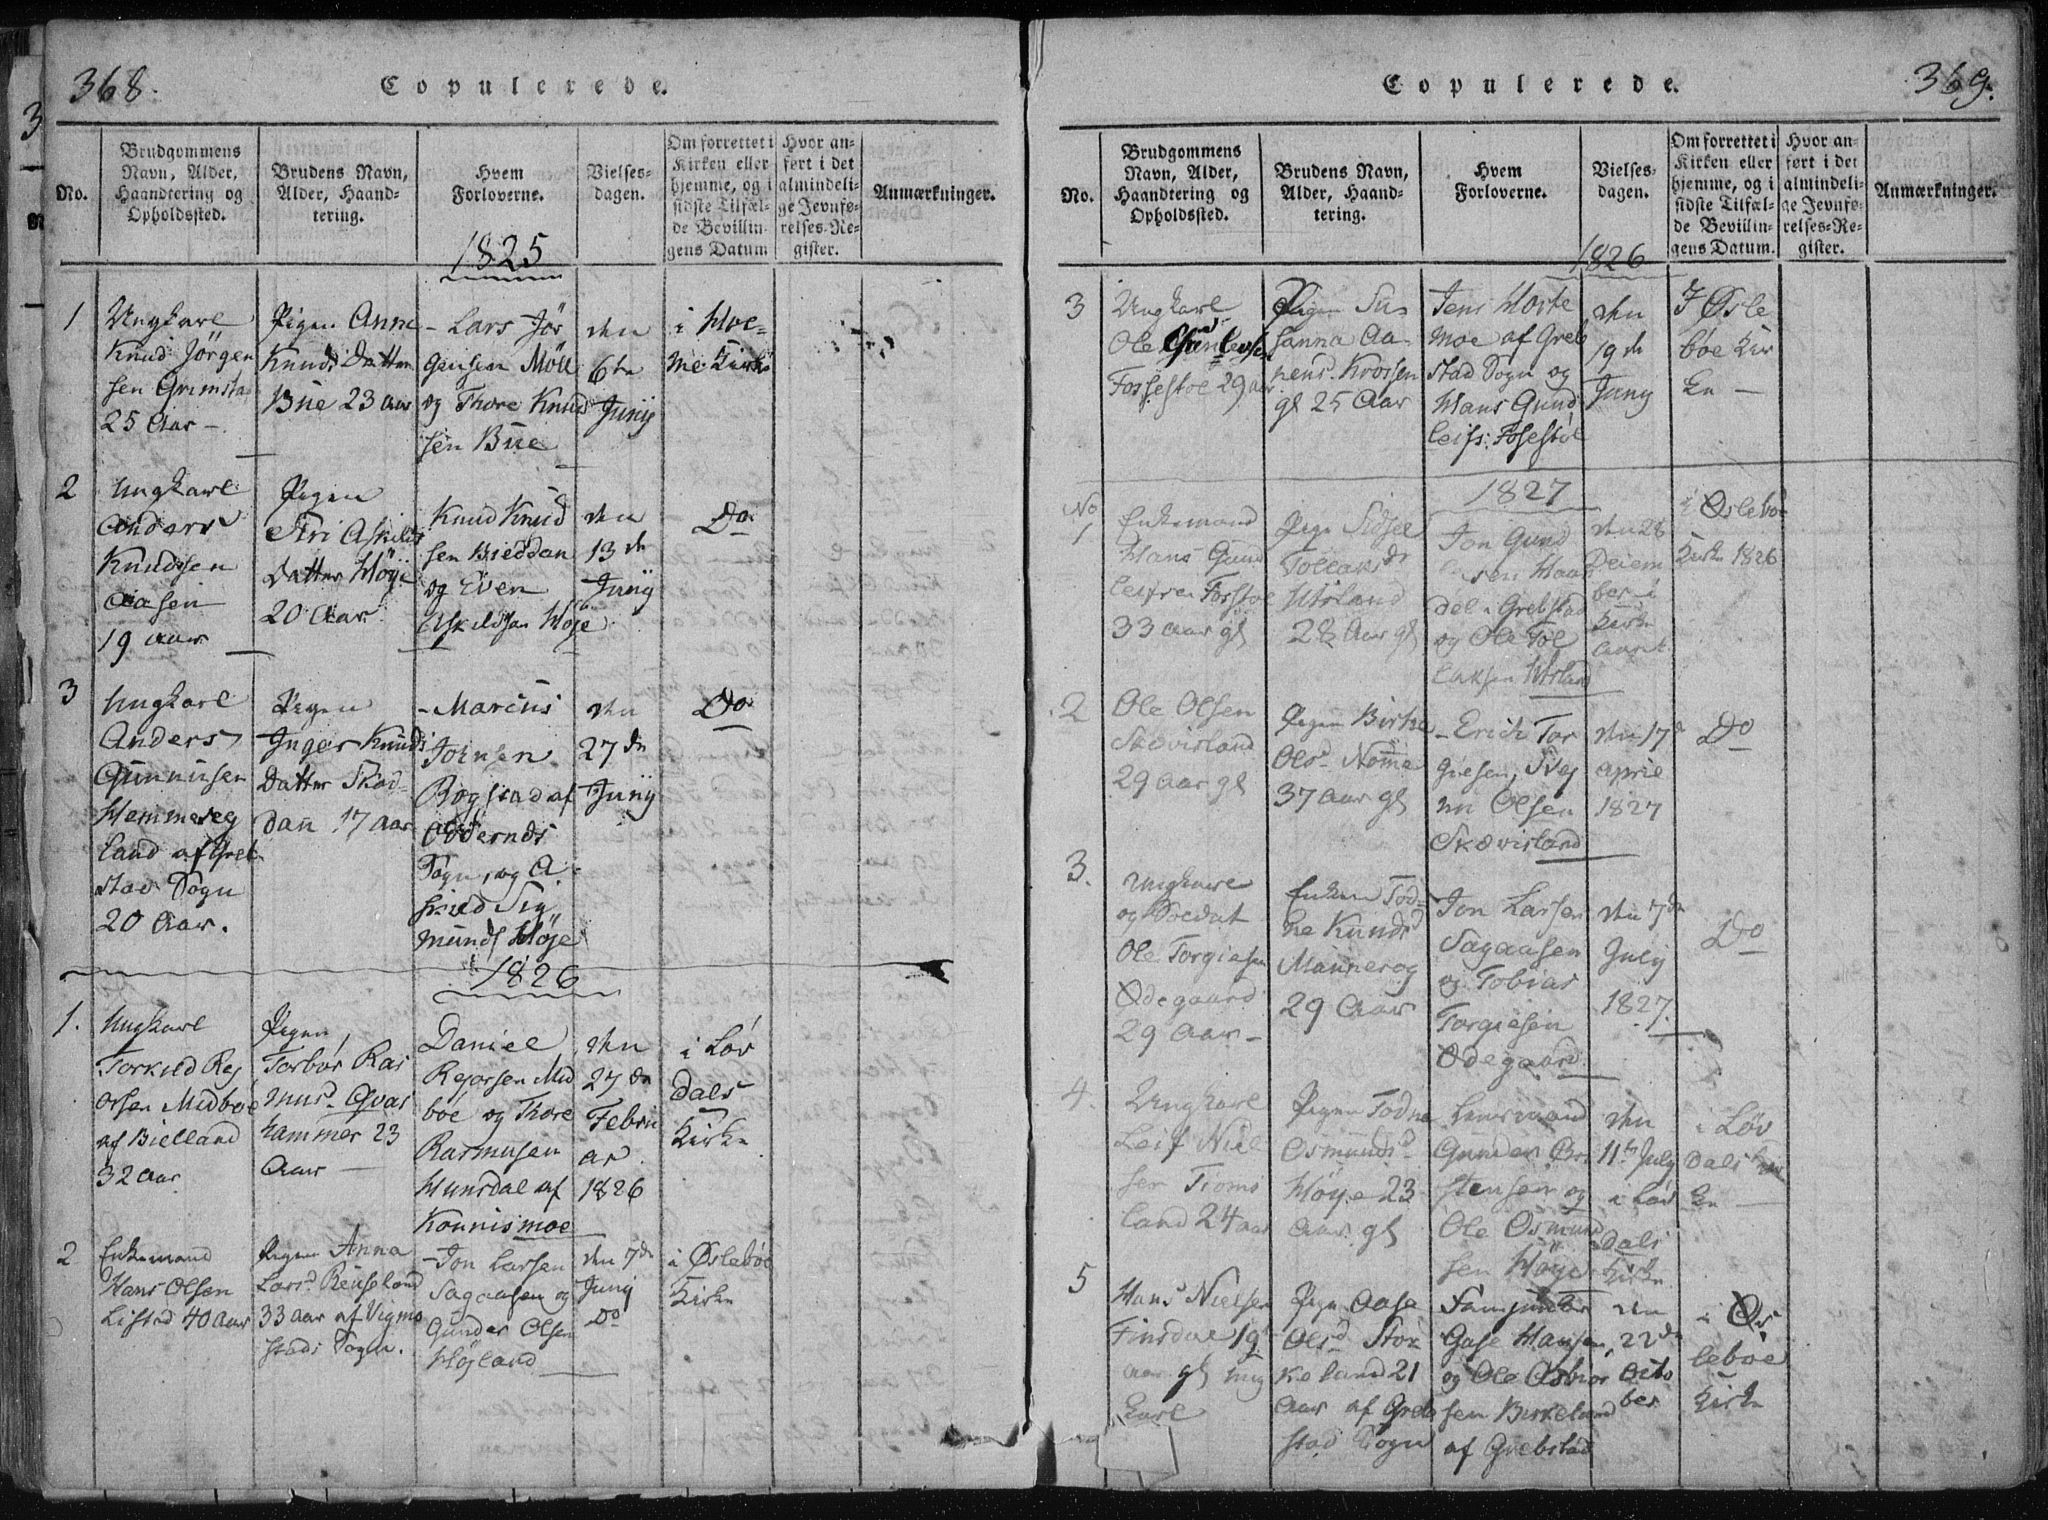 368.
Copulerede.
No.
Brudgommens
Navn, Alder,
Haandtering og
Opholdssted.
Brudens Navn,
Alder, Haand-
tering.
Hvem
Forloverne.
Vielses-
dagen.
Om forrettet i
Kirken eller
hjemme, og i
sidste Tilfæl-
de Bevillin-
gens Datum
Hvor an-
ført i det
almindeli-
ge Jevnfø-
relses-Re-
gister.
Anmærkninger.
1825
1
Ungkarl
Knud Jørgen
sen Grimsta
25 Aar -
Pigen Anne
Knuds Datter
Bue 23 aar
- Lars Jör
gensen Möll
og Thore Knud
sen Bue
den
6te
Junij
i Hoe-
me Kirke
2
Ungkarl
Anders
Knudsen
Aasen
19 aar
Pigen
Siri Askilds
Datter Höje
20 Aar
Knud Knud
sen Bieddan
og Even
Askildsen Höje
den
13de
Junij
Do
3
Ungkarl
Anders
Gunnusen
Hemmeseg
land af Greb
stad Sogn
20 Aar.
Pigen
Inger Knuds
Datter Skod-
dan 17 Aar
- Marcus
Jornsen
Rogstad af
Oddernds
Sogn, og A
skild Sig
munds Höje
den
27de
Junij
Do
1826
1.
Ungkarl
Torkild Rej
orsen Midboe
af Bielland
32 aar
Pigen
Torbor Ras
mus. Qvas
hammer 23
Aar -
Daniel
Rejorsen Mid
boe og Thore
Rasmusen
Hunsdal af
Konnismoe
den
27de
Febru
ar
1826
i Løv
dals
Kirke
2
Enkemand
Hans Olsen
Listad 40 Aar
Pigen Anna
Larsd. Reuseland
33 aar af Vigmo
stads Sogn.
- Jon Larsen
Sagaasen og
Gunder Olsen
Höjland
den 7de
Junij
Do
i Øsleboe
Kirke
369.
Copulerede.
No.
Brudgommens
Navn, Alder,
Haandtering og
Opholdssted.
Brudens Navn,
Alder, Haand-
tering.
Hvem
Forloverne.
Vielses-
dagen.
Om forrettet i
Kirken eller
hjemme, og i
sidste Tilfæl-
de Bevillin-
gens Datum.
Hvor an-
ført i det
almindeli-
ge Jevnfø-
relses-Re-
gister.
Anmærkninger.
1826
3
Ungkarl
Ole Gundlevsen
Fossestoe 29 aar
Pigen Su-
sanna Aa-
nens. Krossen
gl 25 Aar
Jens Horte
moe af Greb
stad Sogn og
Hans Gund
leifs: Fosestöl
den
19de
Junij
I Øsle
böe Kir
ke -
1827
No
1
Enkemand
Hans Gund
leifsen Fosstoe
33 aar gl
Pigen Sidsel
Tollaksd
Usland
28 Aar gl
Jon Gund
ersen Haa
del i Grebstad
og Ole Tol
laksen Usland
den 28
Decem
ber i
Kirke
aaret
i Øsleboe
Kirke 1826
2
Ole Olsen
Skævisland
29 aar gl
Pigen Birthe
Olsd. Nome
37 aar gl
- Erich Tor
giesen, Svej
nu Olsen
Skævisland
den 17de
April
1827
Do
3.
Ungkarl
og Soldat
Ole Torgiesen
Ødegaard
29 Aar -
Enken Tod-
ne Knudsd
Mannerog
29 Aar
Jon Larsen
Sagaasen
og Tobias
Torgiesen
Ødegaard
den 7de
July
1827.
Do
4.
Ungkarl
Leif Niel
sen Tioms
land 24 aar
Pigen Todne
Osmundsd
Höye 23
aar gl
Lensmand
Gunder Bri
stensen og
Ole Osmund
sen Höye
den
11te July
i Løv
dals
Kirke
i Løv
dals Kir
ke -
5
Hans Nielsen
Finsdal 19
aar gl ung
karl
Pigen Aase
Olsd Stor
keland 21
Aar af Greb
stad Sogn
Gase Hansen
og Ole Osbior
sen Birkeland
af Grebstad
den
22de
Octo
ber
i Øs
leboe
Kirke